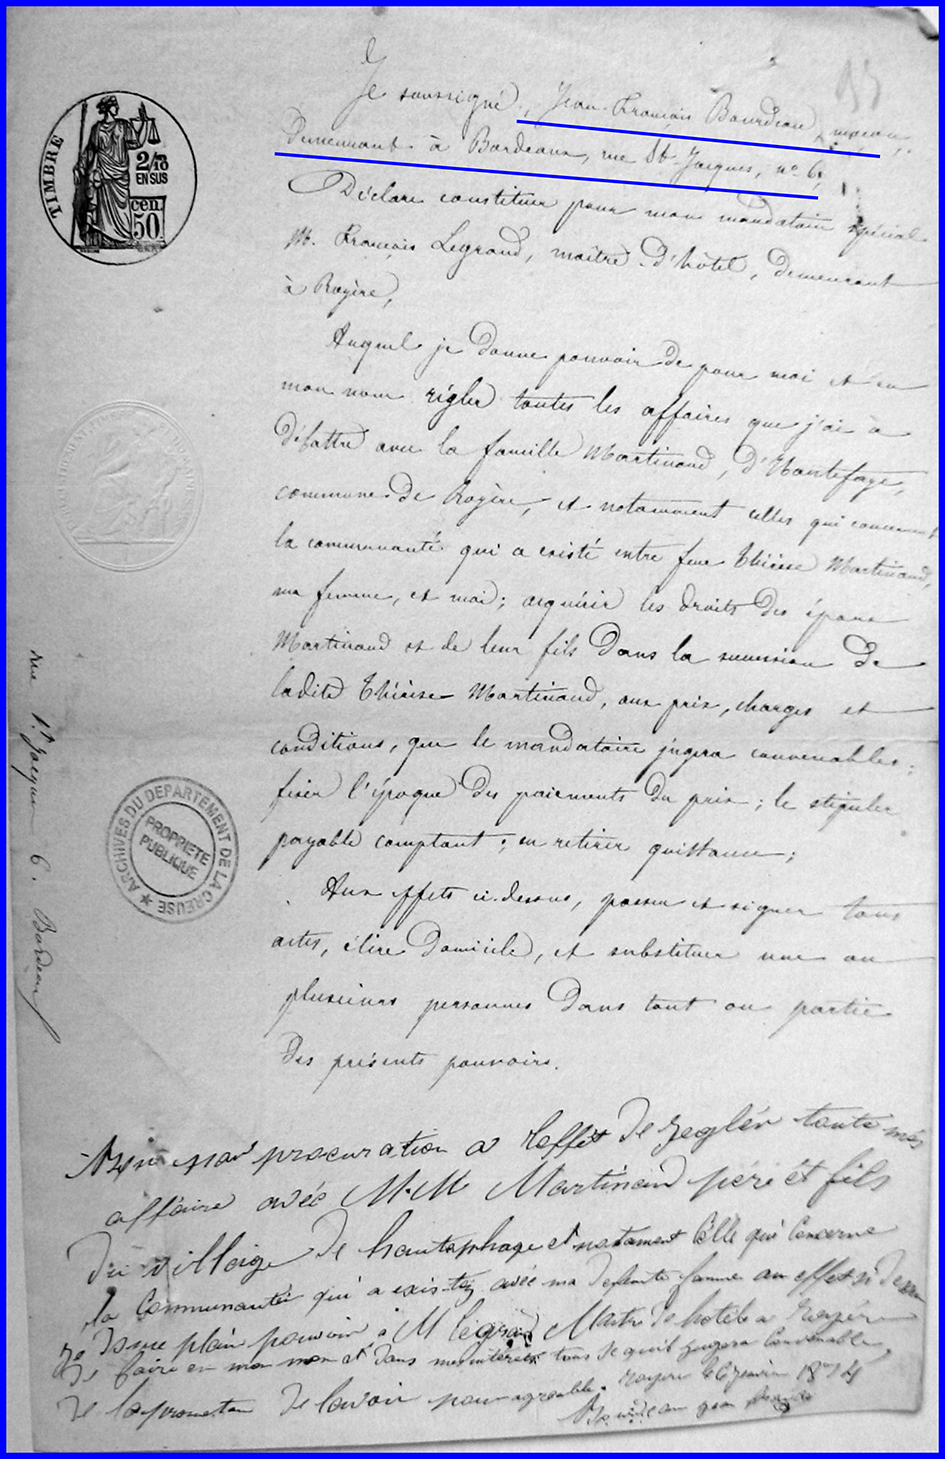 95
Je soussigné, Jean-François Bourdeau, maçon,
Demeurant à Bordeaux, rue St Jacques, no 6,
Déclare constituer pour mon mandataire spécial
M. François Legrand, maître d'hôtel, demeurant
à Royère,
Auquel je donne pouvoir de pour moi et en
mon nom régler toutes les affaires que j'ai à
débattre avec la famille Martinaud, d'Hautefaye,
commune de Royère, et notamment celles qui concernent
la communauté qui a existé entre feue Thérèse Martinaud,
ma femme, et moi; acquérir les droits des époux
Martinaud et de leur fils dans la succession de
ladite Thérèse Martinaud, aux prix, charges et
conditions, que le mandataire jugera convenables;
fixer l'époque des paiements du prix; le stipuler
payable comptant; en retirer quittance;
Aux effets ci-dessus, passer et signer tous
actes, élire domicile, et substituer une ou
plusieurs personnes dans tout ou partie
des présents pouvoirs.
procuration a leffet de reglér toute més
affaire avéc M.M Martinaud pére et fils
du villaige de hautephage et notament Célle qui Concerne
la Communauté qui a existez avéc ma défunte famme au effet si desu
Je donne plain pouvoir a M legrand Maitre de hotél a Royér
de faire en mon nom et dans mes interets tous se quil jugera Convenable
de lavoir pour agreable. royere le 6 1874
Bourdeau jean francois
TIMBRE
2/10
EN SUS
50 cen.
ARCHIVES DU DEPARTEMENT DE LA CREUSE
PROPRIETE
PUBLIQUE
rue St Jacques 6. Bordeaux